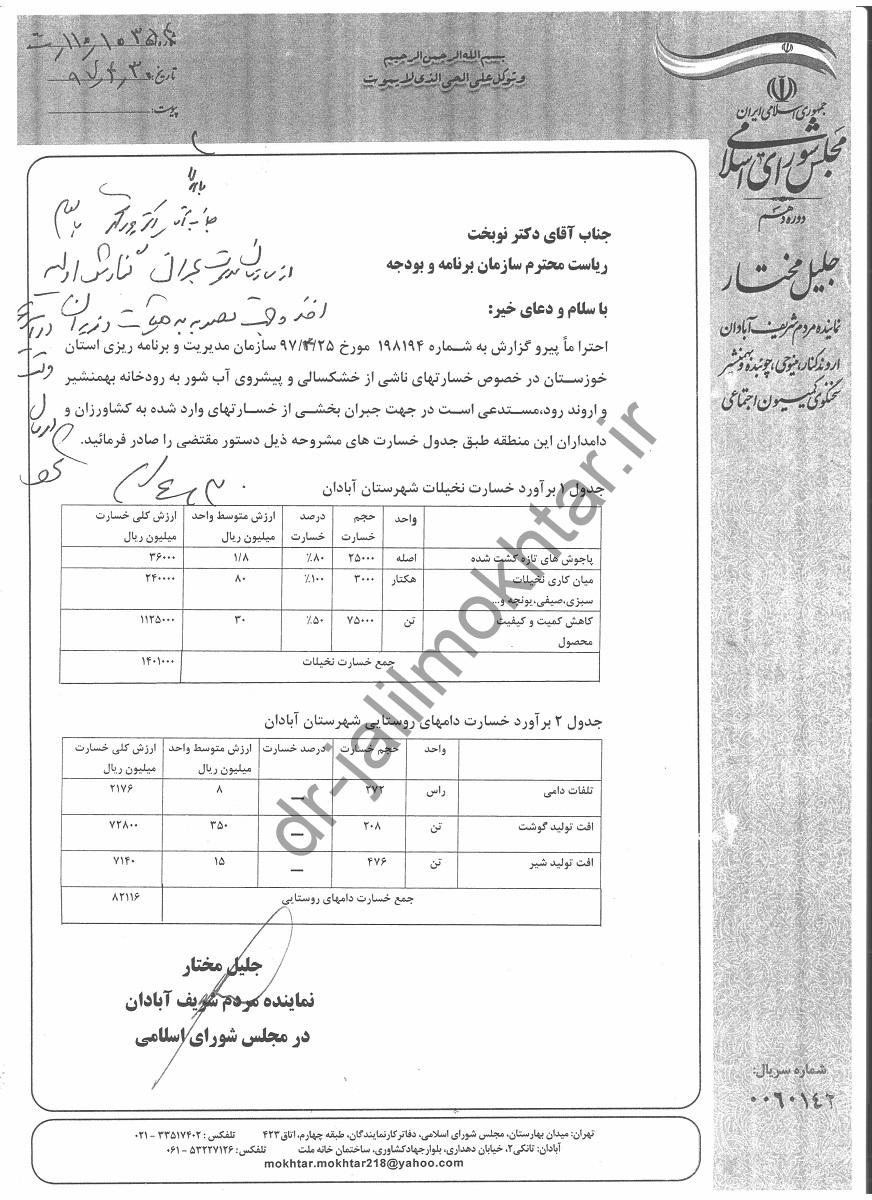 بسم الله الرحمن الرحیم
و توکل علی الحی الذی لا یموت
شماره:
تاریخ:
پیوست:
جمهوری اسلامی ایران
مجلس شورای اسلامی
دوره دهم
جلیل مختار
نماینده مردم شریف آبادان
اروندکنار، مینوحی، چوئبده و بهمنشیر
سخنگوی کمیسیون اجتماعی
جناب آقای دکتر نوبخت
ریاست محترم سازمان برنامه و بودجه
با سلام و دعای خیر:
احترا ماً پیرو گزارش به شماره ۱۹۸۱۹۴ مورخ ۹۷/۴/۲۵ سازمان مدیریت و برنامه ریزی استان
خوزستان در خصوص خسارتهای ناشی از خشکسالی و پیشروی آب شور به رودخانه بهمنشیر
و اروند رود،مستدعی است در جهت جبران بخشی از خسارتهای وارد شده به کشاورزان و
دامداران این منطقه طبق جدول خسارت های مشروحه ذیل دستور مقتضی را صادر فرمائید.
جدول ۱ برآورد خسارت نخیلات شهرستان آبادان
واحد حجم خسارت درصد خسارت ارزش متوسط واحد میلیون ریال ارزش کلی خسارت میلیون ریال
پاجوش های تازه کشت شده اصله ۲۵۰۰۰ ٪۸۰ ۱/۸ ۳۶۰۰۰
میان کاری نخیلات هکتار ۳۰۰۰ ٪۱۰۰ ۸۰ ۲۴۰۰۰۰
سبزی،صیفی،یونجه و...
کاهش کمیت و کیفیت تن ۷۵۰۰۰ ٪۵۰ ۳۰ ۱۱۲۵۰۰۰
محصول
جمع خسارت نخیلات ۱۴۰۱۰۰۰
جدول ۲ برآورد خسارت دامهای روستایی شهرستان آبادان
واحد حجم خسارت درصد خسارت ارزش متوسط واحد میلیون ریال ارزش کلی خسارت میلیون ریال
تلفات دامی راس ۲۷۲ — ۸ ۲۱۷۶
افت تولید گوشت تن ۲۰۸ — ۳۵۰ ۷۲۸۰۰
افت تولید شیر تن ۴۷۶ — ۱۵ ۷۱۴۰
جمع خسارت دامهای روستایی ۸۲۱۱۶
جلیل مختار
نماینده مردم شریف آبادان
در مجلس شورای اسلامی
شماره سریال:
۰۰۶۰۱۴۲
تهران: میدان بهارستان، مجلس شورای اسلامی، دفاتر کارنمایندگان، طبقه چهارم، اتاق۴۲۳ تلفکس: ۳۳۵۱۷۴۰۲ - ۰۲۱
آبادان: تانکی۲، خیابان دهداری، بلوارجهادکشاورزی، ساختمان خانه ملت تلفکس: ۵۳۲۲۷۱۲۶ - ۰۶۱
mokhtar.mokhtar218@yahoo.com
dr-jalilmokhtar.ir